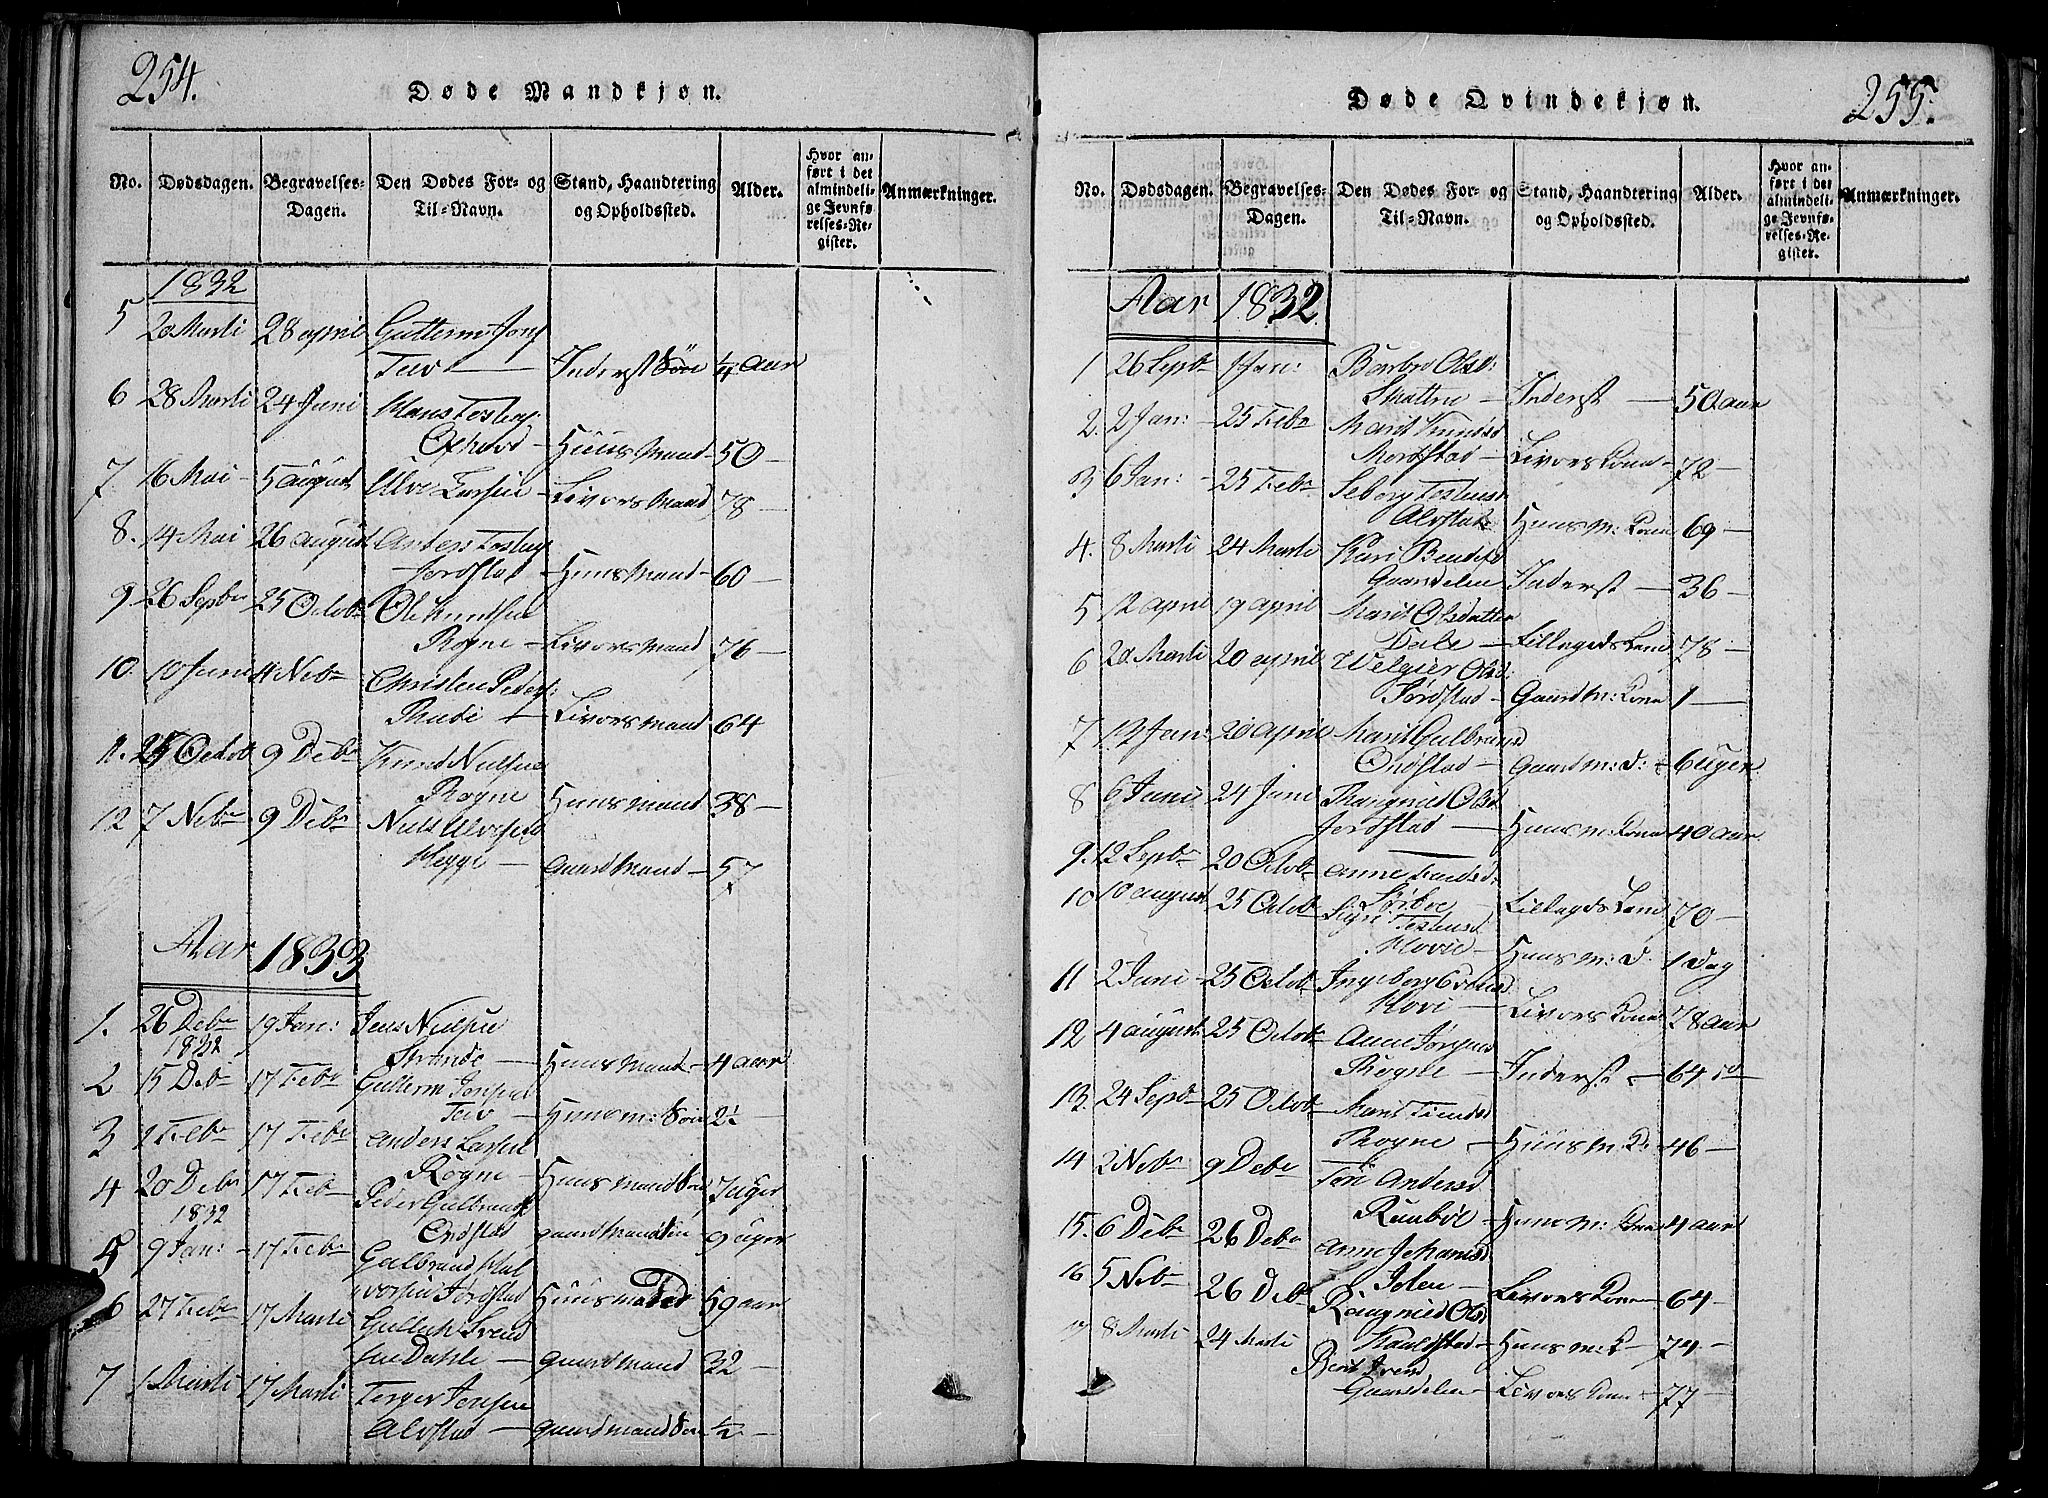 254.
Døde Mandkjøn.
No. Dødsdagen. Begravelses-Dagen. Den Dødes For- og Til-Navn. Stand, Haandtering og Opholdssted. Alder. Hvor anført i det almindelige Jevnførelses-Register. Anmærkninger.
1832
5 20 Marti 28 april Guttorm Jons
Teiv — Inderst Søn ¼ aar
6 28 Marti 24 Juni Hans Tostens
Hüüs Mand — 50 —
7 16 Mai — 5 august Ulve Larsen — Livørs Mand 78 —
8. 14 Mai 26 august Anders Tostens
Jerdstad — Huus Mand — 60 —
9 26 Sepbr 25 Octobr Ole Knudsen
Rogne — Livørs Mand 76 —
10. 10 Juni 4 Nebr Christen Peders:
Rude — Livørs mand 64
11. 25 Octob 9 Debr Knud Nielsen
Rogne Huus mand 38 —
12 7 Nebr 9 Debr Niels Ulvesen
Hegge — Gaard Mand — 57
Aar 1833
1. 26 Debr 19 Jan: Jens Nielsen
1832 Strande — Huus Mand — 4 aar
2 15 Debr 17 Febr Guttorm Jonsen
Teiv — Huus m: Søn 2½
3 1 Febr 17 Febr Anders Larsen
Rogne — Huus mand Søn 7 uger
4 20 Debr 17 Feb Peder Gulbrands
1832 Onstad gaard Mand Søn 9 uger
5 9 Jan: — 17 Febr Gulbrand Hal
vorsen Jordstad Huus mand 59 aar
6 27 Febr 17 Marti Gullich Svend
sen Dahle — gaard mand 32 —
7 1 Marti 17 Marti Torger Jonsen
Alvstad — gaard mand Søn ½
255.
Døde Qvindekjøn.
No. Dødsdagen. Begravelses-Dagen. Den Dødes For- og Til-Navn. Stand, Haandtering og Opholdssted. Alder. Hvor anført i det almindelige Jevnførelses-Register. Anmærkninger.
Aar 1832
1 26 Sepbr 1 Jan: Barbro Olsd:
Skattru — Inderst — 50 aar
2. 2 Jan: — 25 Febr Marit Knudsd
Mordstad — Livørs Kone — 72 —
3 6 Jan: — 25 Febr Seborg Tostensd
Alvstad Huus m: Kone 69 —
4. 8 Marti 24 Marti Kari Bendixd
Gaardelen Inderst — 36 —
5 12 april 19 april Marit Olsdatter
Dale — Lillegeds Lem 78 —
6 20. Marti 20 april Velgier Olsd:
Jordstad — Gaard m: Kone 1 —
7 12 Jan: 20 april Marit Gulbrands
Onstad — Gaard m: D: — 6 uger
8 6 Juni 24 Juni Rangnild Olsd
Jerdstad — Huus m: Kone 40 aar
9. 12 Sepbr 20 Octobr Anne Knudsd:
Sørbøe — Lillegds Lem 70 —
10 10 august 25 Octob Sigri Tostensd
Hovie — Huus m: D. 1 Dag
11 2 Juni — 25 Octob Ingeborg
Hovi — Livørs Kone 78 aar
12 4 august 25 Octobr Anne Jørgens
Rogne — Inderst — 64
13. 24 Sepbr 25 Octob Marit
Rogne — Huus m: K: — 46 —
14 2 Nebr 9 Debr Tore Andersd
Rudbøe — Huus m: 4 aar
15. 6 Debr 26 Debr Anne Johanisd
Islen — Livørs Kone — 64 —
16 5 Nebr 26 Debr Rangnild Olsd
Kaldstad — Huus m: K — 74 —
17 8 Marti 24 Marti Berit
Gaardelen — Livørs Kone — 77 —